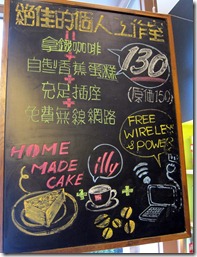 絕佳的個人工作室
拿鐵咖啡
+
自製香蕉蛋糕
+
充足插座
+
免費無線網路
130
(原価150)
FREE
WIRELESS
& POWER
HOME
MADE
CAKE
illy
+
+